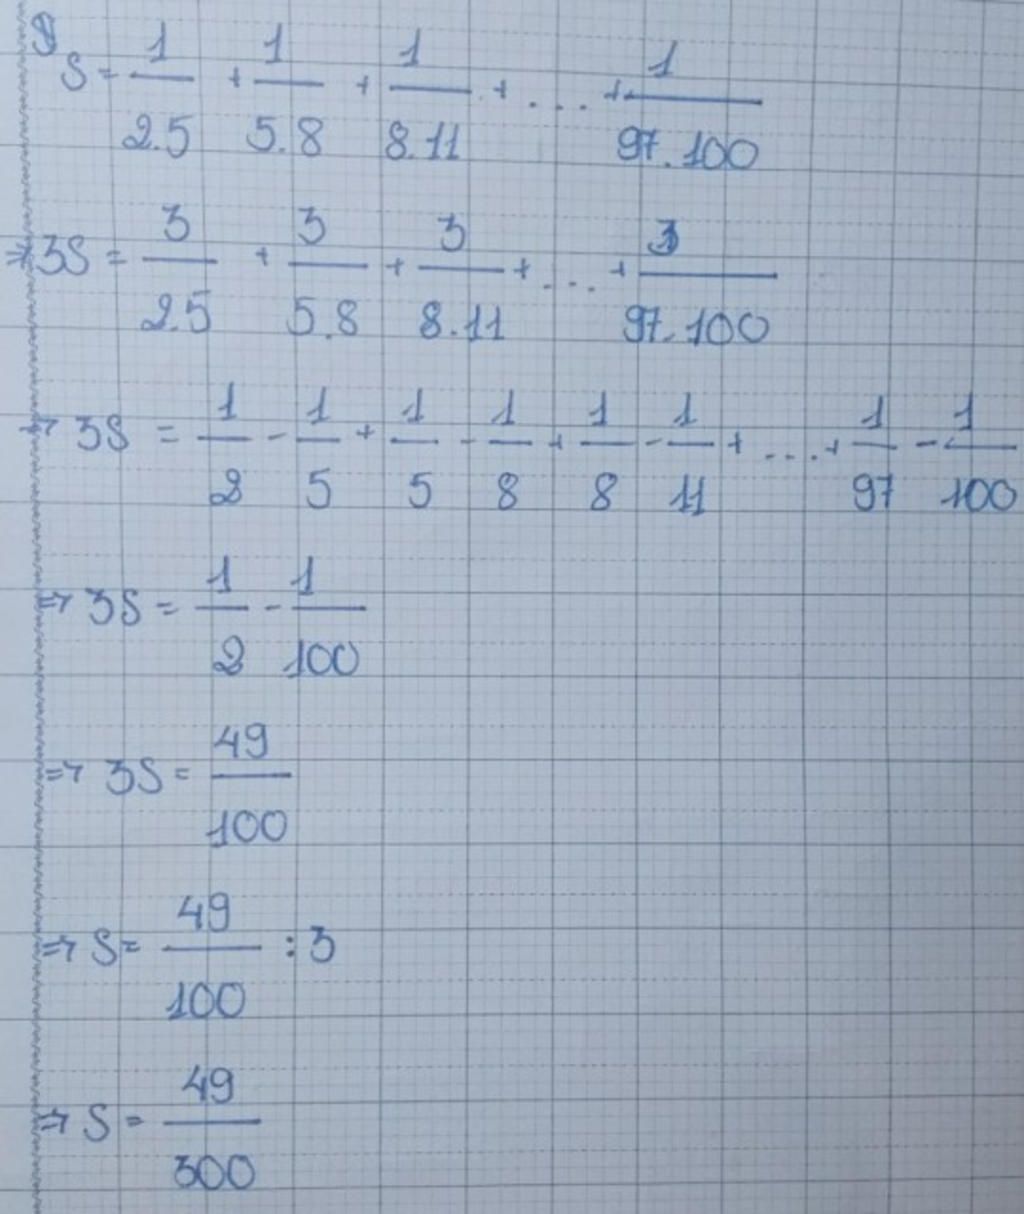 S = 1/2.5 + 1/5.8 + 1/8.11 + .... + 1/97.100
⇒ 3S = 3/2.5 + 3/5.8 + 3/8.11 + .... + 3/97.100
→ 3S = 1/2 - 1/5 + 1/5 - 1/8 + 1/8 - 1/11 + .... + 1/97 - 1/100
⇒ 3S = 1/2 - 1/100
⇒ 3S = 49/100
⇒ S = 49/100 : 3
⇒ S = 49/300